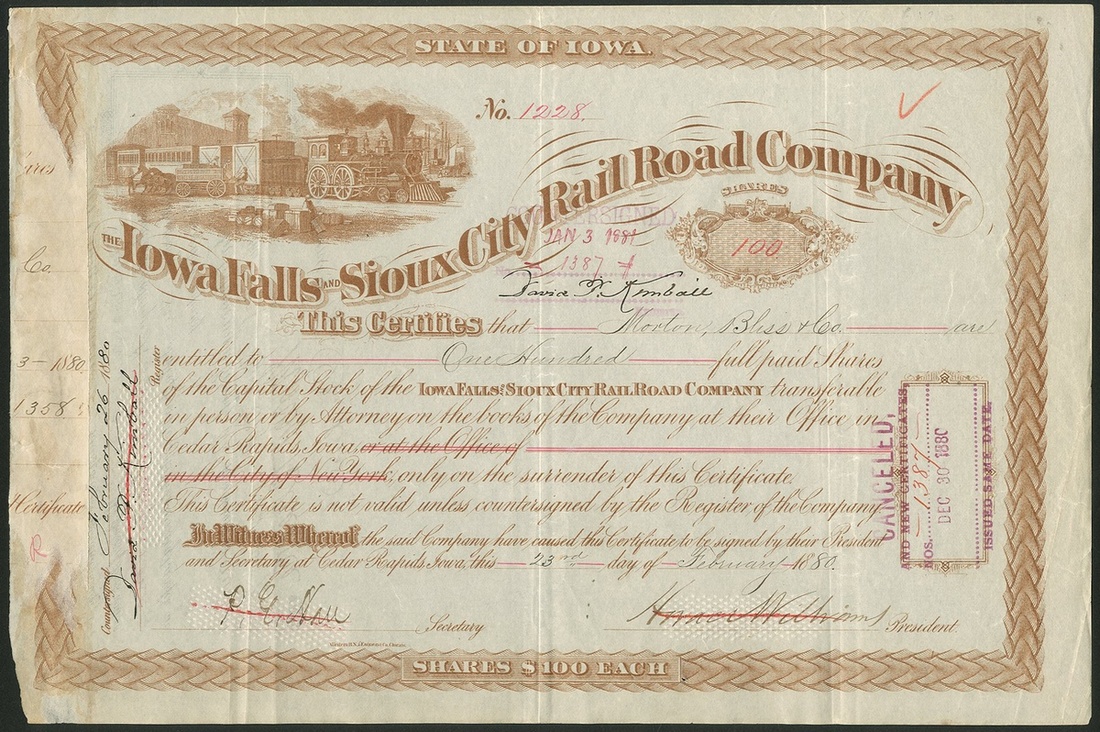 STATE OF IOWA.
No. 1228.
THE IOWA FALLS AND SIOUX CITY RAIL ROAD COMPANY
SHARES
100
COUNTERSIGNED
JAN 3 1881
1387
David P. Kimball
This Certifies that Morton, Bliss & Co. are
entitled to One Hundred full paid Shares
of the Capital Stock of the IOWA FALLS AND SIOUX CITY RAIL ROAD COMPANY transferable
in person or by Attorney on the books of the Company at their Office in
Cedar Rapids, Iowa, or at the Office of
in the City of New York, only on the surrender of this Certificate.
This Certificate is not valid unless countersigned by the Register of the Company.
In Witness Whereof the said Company have caused this Certificate to be signed by their President
and Secretary at Cedar Rapids, Iowa, this 23rd day of February 1880.
P. E. Hall Secretary
Horace Williams President.
SHARES $100 EACH
Countersigned February 26 1880
David P. Kimball Register
CANCELED,
AND NEW CERTIFICATES,
NOS. 1387
DEC 30 1880
ISSUED SAME DATE.
Co.
3 - 1880
1358
Certificate
R